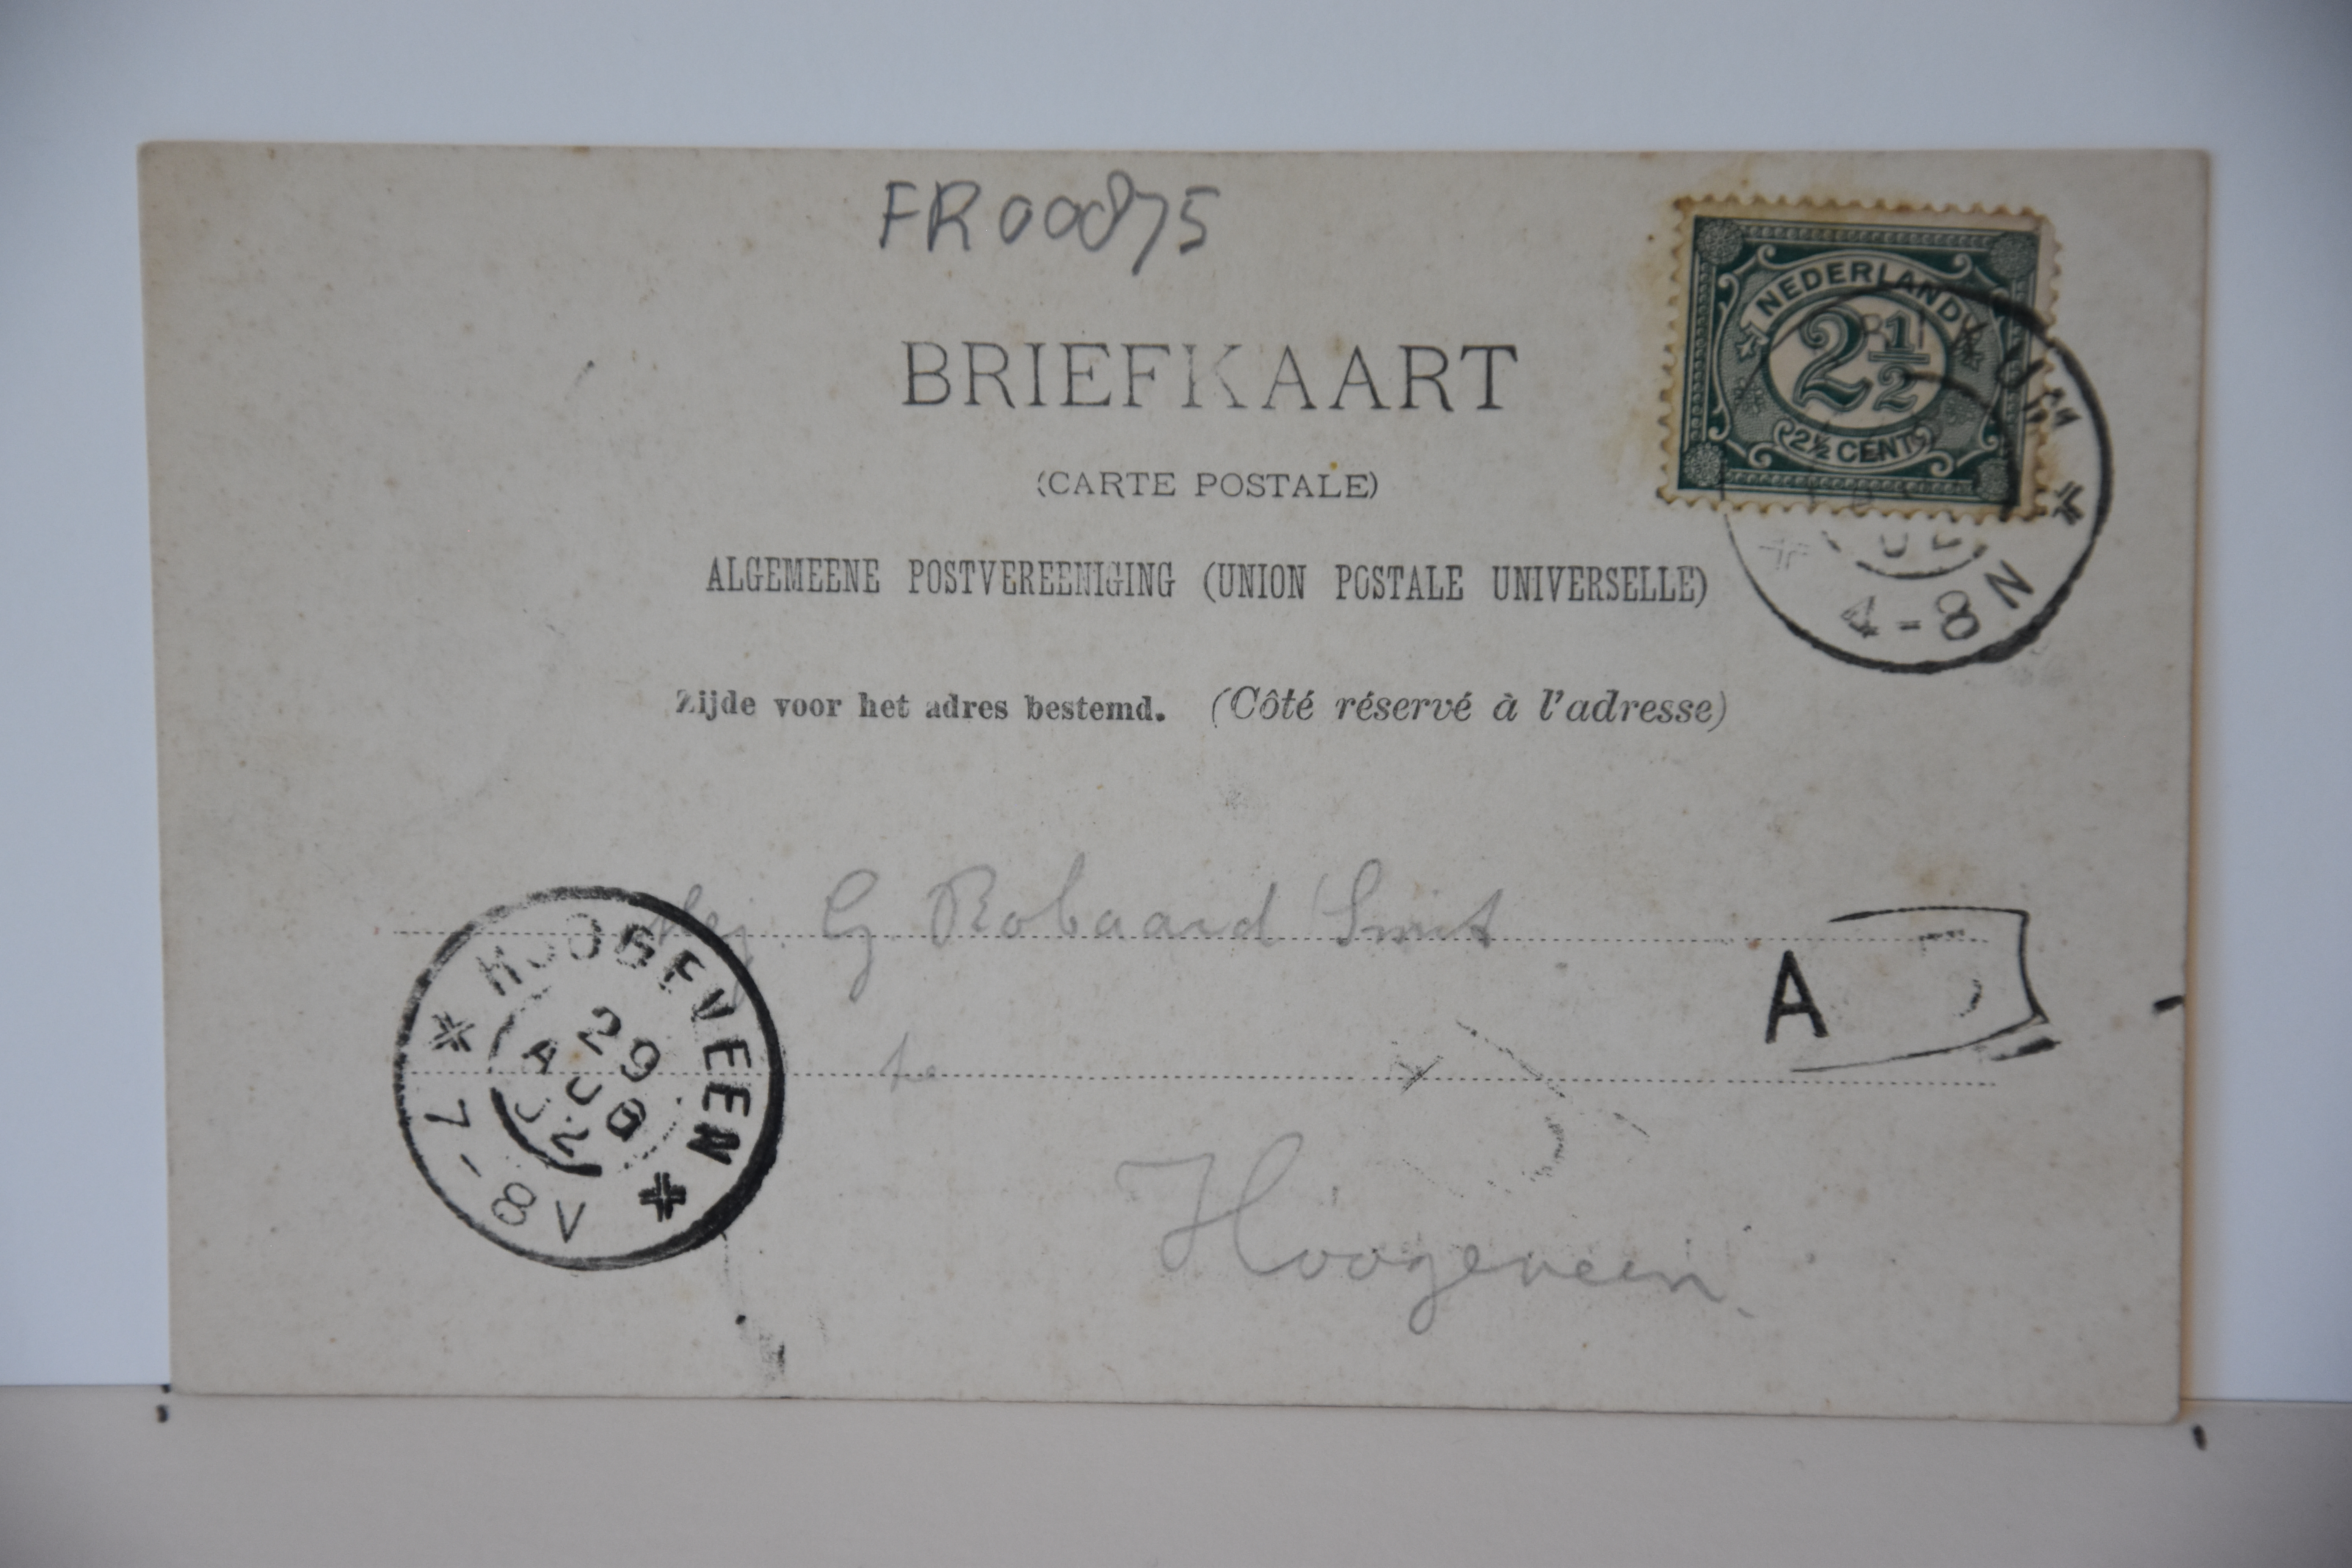 FR00875
NEDERLAND
2½
2½ CENT
BRIEFKAART
(CARTE POSTALE)
ALGEMEENE POSTVEREENIGING (UNION POSTALE UNIVERSELLE)
4-8 N
Zijde voor het adres bestemd. (Côté réservé à l'adresse)
Mej. G. Robaard Smit
A
te
Hoogeveen.
HOOGEVEEN
29
AUG
02
7-8 V